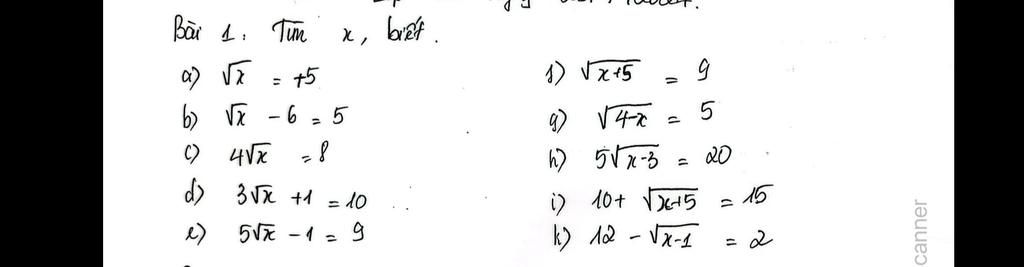 Bài 1: Tìm x, biết.
a) √x = +5
b) √x - 6 = 5
c) 4√x = 8
d) 3√x + 1 = 10
e) 5√x - 1 = 9
f) √(x+5) = 9
g) √(4-x) = 5
h) 5√(x-3) = 20
i) 10 + √(x+5) = 15
k) 12 - √(x-1) = 2
canner